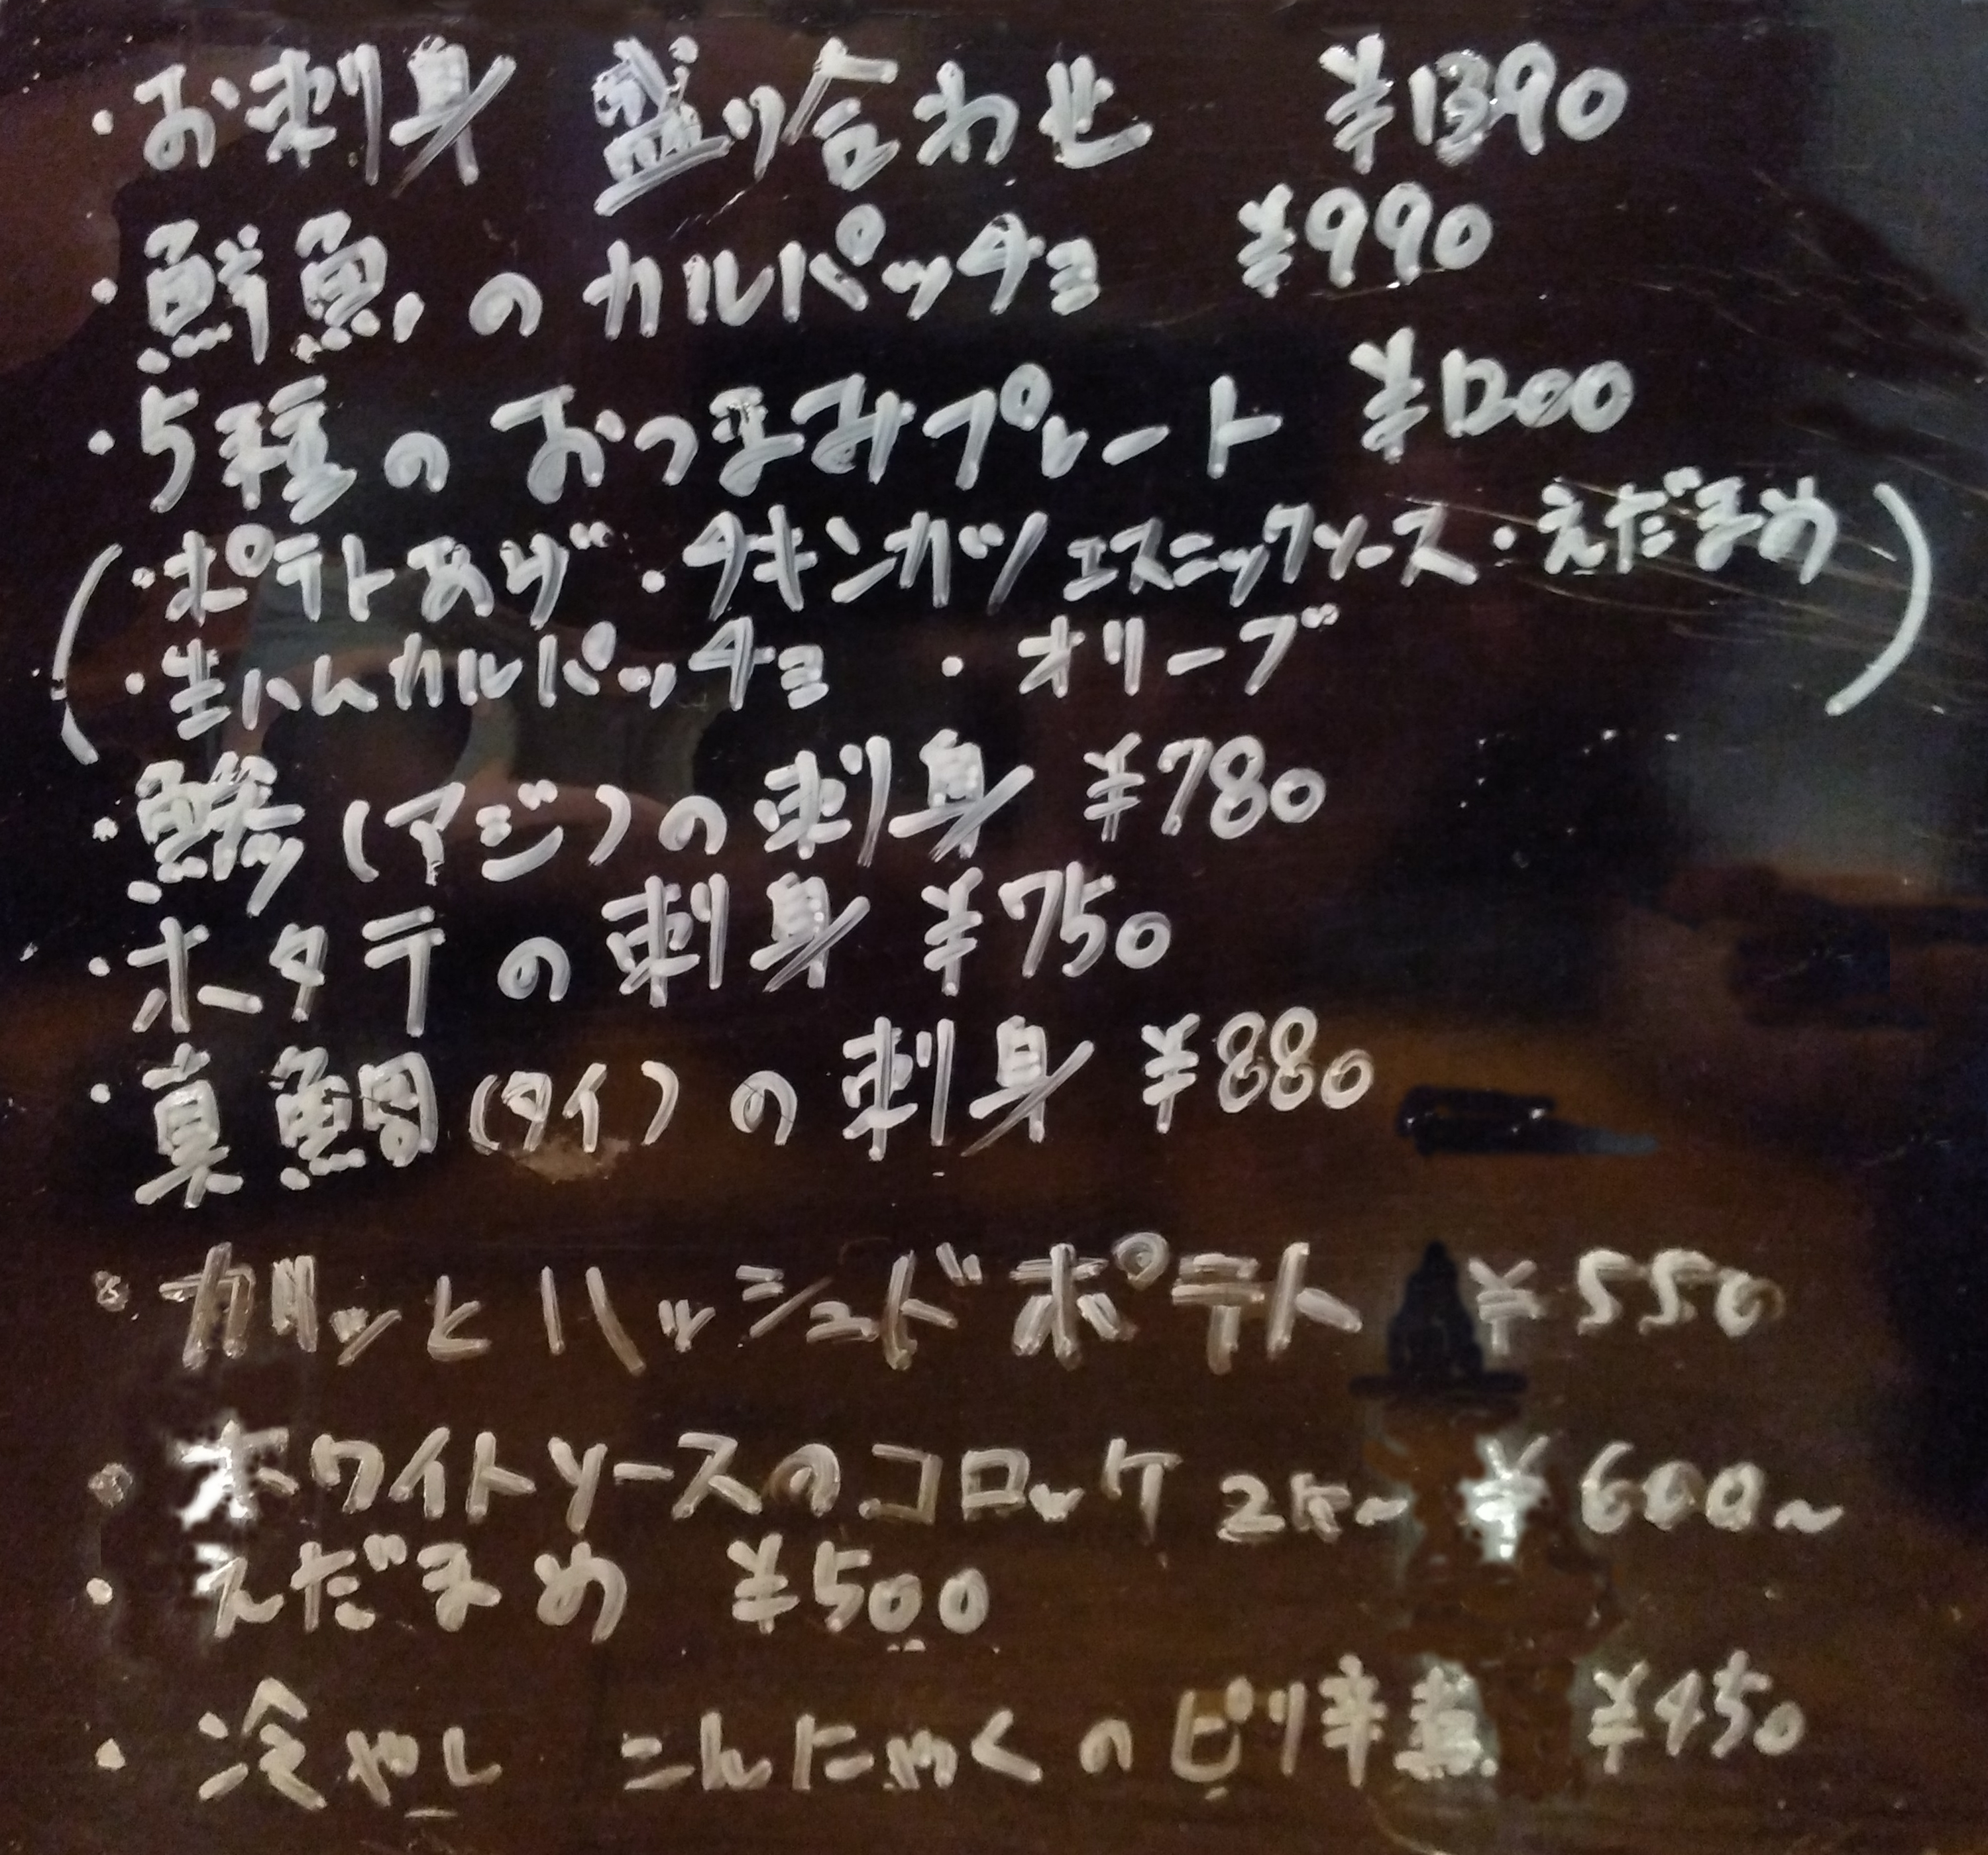 ・お刺身 盛り合わせ ¥1390
・鮮魚のカルパッチョ ¥990
・5種のおつまみプレート ¥1200
(・ポテトあげ・チキンカツ エスニックソース・えだまめ
・生ハムカルパッチョ ・オリーブ)
・鯵(アジ)の刺身 ¥780
・ホタテの刺身 ¥750
・真鯛(タイ)の刺身 ¥880
・カリッとハッシュドポテト ¥550
・ホワイトソースのコロッケ 2ケ~ ¥600~
・えだまめ ¥500
・冷やし こんにゃくのピリ辛煮 ¥450